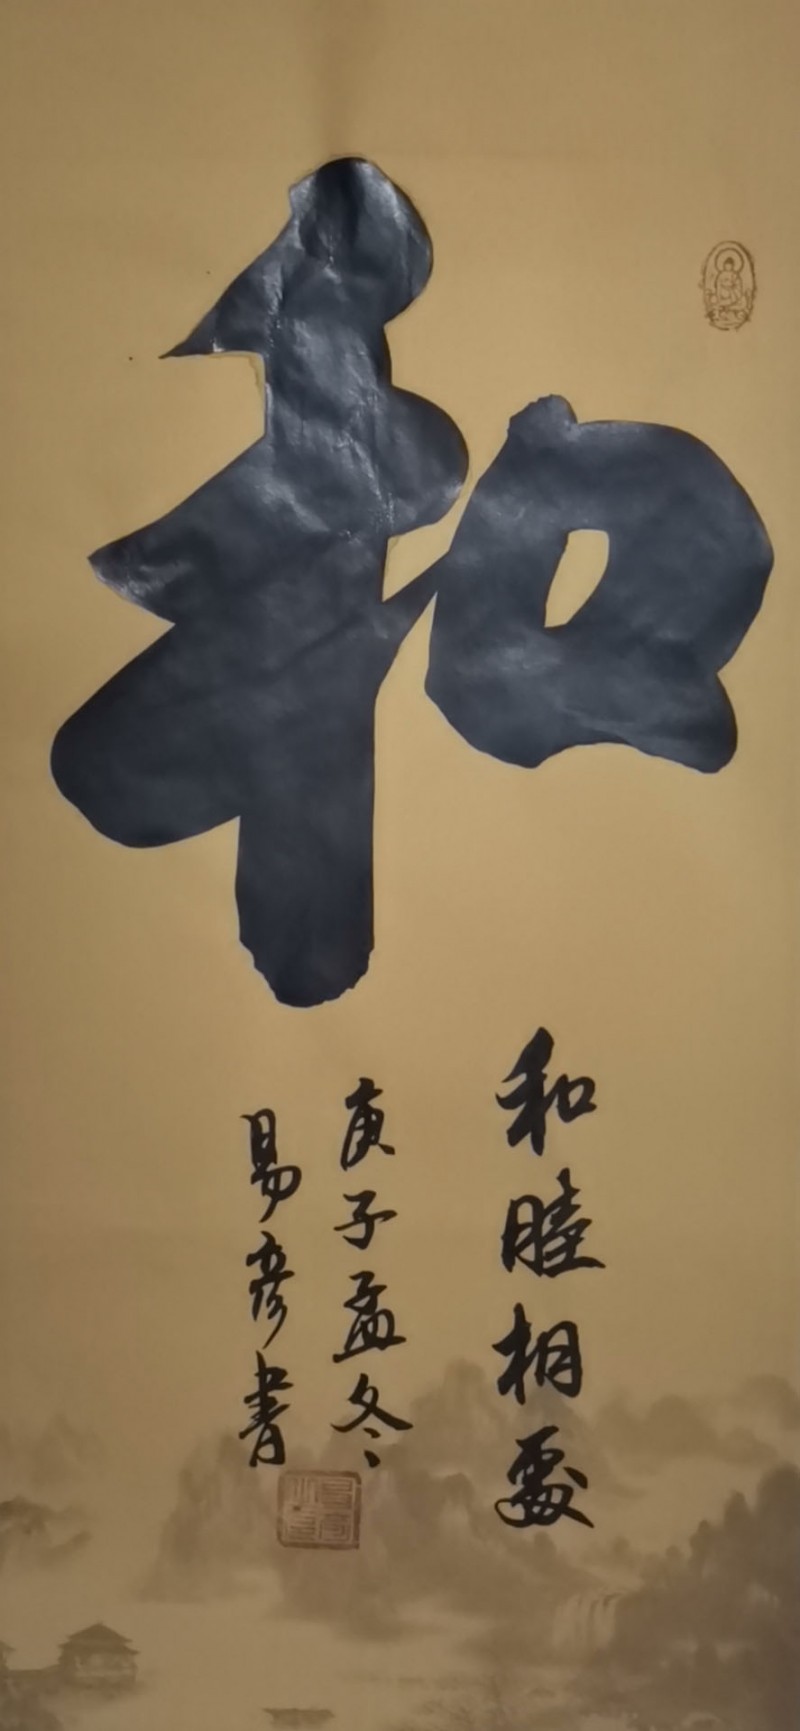 和
和睦相處
庚子孟冬
易彦書